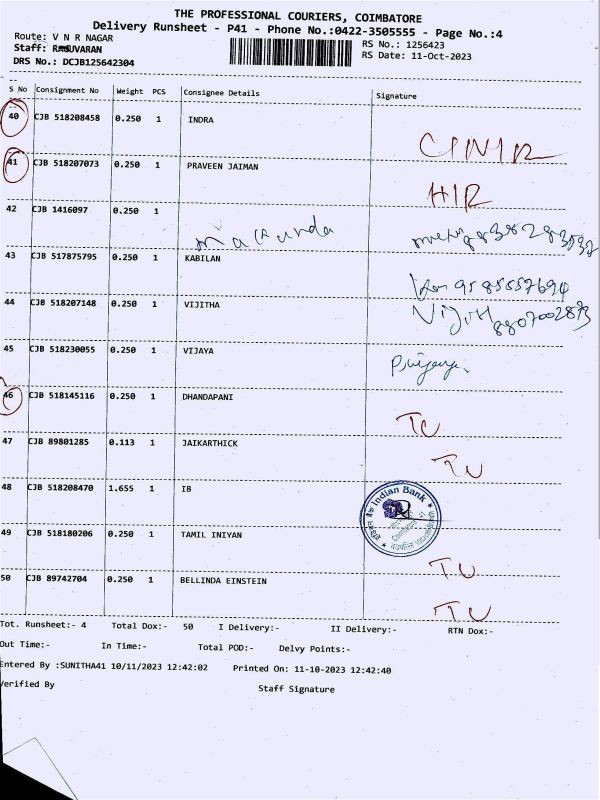 THE PROFESSIONAL COURIERS, COIMBATORE
Delivery Runsheet - P41 - Phone No.:0422-3505555 - Page No.:4
Route: V N R NAGAR RS No.: 1256423
Staff: RAGUVARAN RS Date: 11-Oct-2023
DRS No.: DCJB125642304
S No Consignment No Weight PCS Consignee Details Signature
40 CJB 518208458 0.250 1 INDRA
41 CJB 518207073 0.250 1 PRAVEEN JAIMAN
HIR
42 CJB 1416097 0.250 1
43 CJB 517875795 0.250 1 KABILAN
44 CJB 518207148 0.250 1 VIJITHA
8807002873
45 CJB 518230055 0.250 1 VIJAYA
46 CJB 518145116 0.250 1 DHANDAPANI
TU
47 CJB 89801285 0.113 1 JAIKARTHICK
TU
48 CJB 518208470 1.655 1 IB
Indian Bank
49 CJB 518180206 0.250 1 TAMIL INIYAN
TU
50 CJB 89742704 0.250 1 BELLINDA EINSTEIN
TU
Tot. Runsheet:- 4 Total Dox:- 50 I Delivery:- II Delivery:- RTN Dox:-
Out Time:- In Time:- Total POD:- Delvy Points:-
Entered By :SUNITHA41 10/11/2023 12:42:02 Printed On: 11-10-2023 12:42:40
Verified By Staff Signature